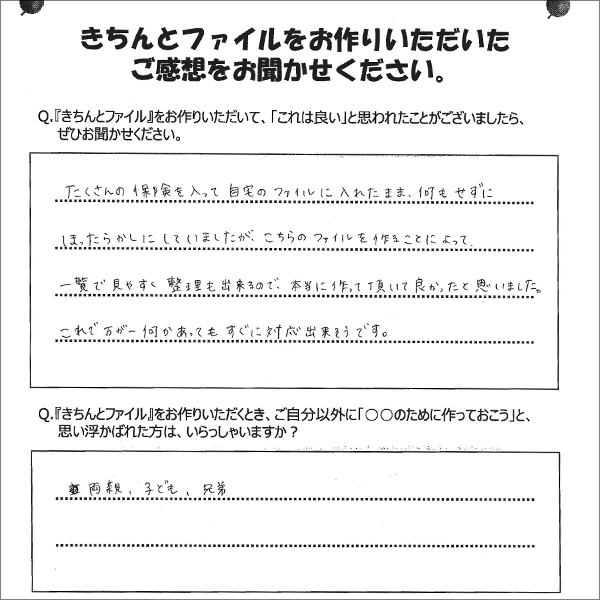 きちんとファイルをお作りいただいた
ご感想をお聞かせください。
Q.『きちんとファイル』をお作りいただいて、「これは良い」と思われたことがございましたら、
ぜひお聞かせください。
たくさんの保険を入って自宅のファイルに入れたまま、何もせずに
ほったらかしにしていましたが、こちらのファイルを作ることによって、
一覧で見やすく整理も出来るので、本当に作って頂いて良かったと思いました。
これで万が一何かあってもすぐに対応出来そうです。
Q.『きちんとファイル』をお作りいただくとき、ご自分以外に「○○のために作っておこう」と、
思い浮かばれた方は、いらっしゃいますか？
両親、子ども、兄弟